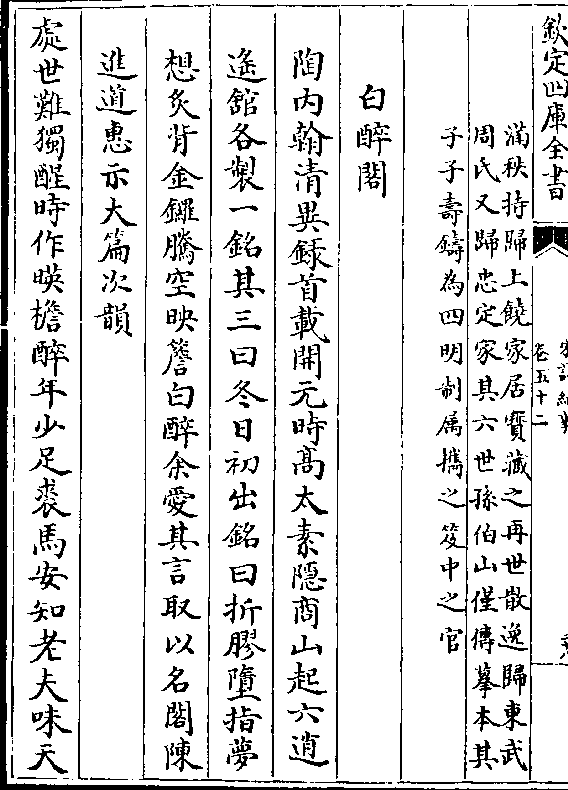 欽定四庫全書
卷五十二
滿秩持歸上饒家居寶藏之再世散逸歸東武
周氏又歸忠定家其六世孫伯山僅傳摹本其
子子壽鑄為四明制屬攜之笈中之官
白醉閣
陶内翰清異録首載開元時髙太素隱商山起六逍
遙舘各製一銘其三曰冬日初出銘曰折膠墮指夢
想炙背金鑼騰空映簷白醉余愛其言取以名閣陳
進道惠示大篇次韻
處世難獨醒時作暎檐醉年少足裘馬安知老夫味天